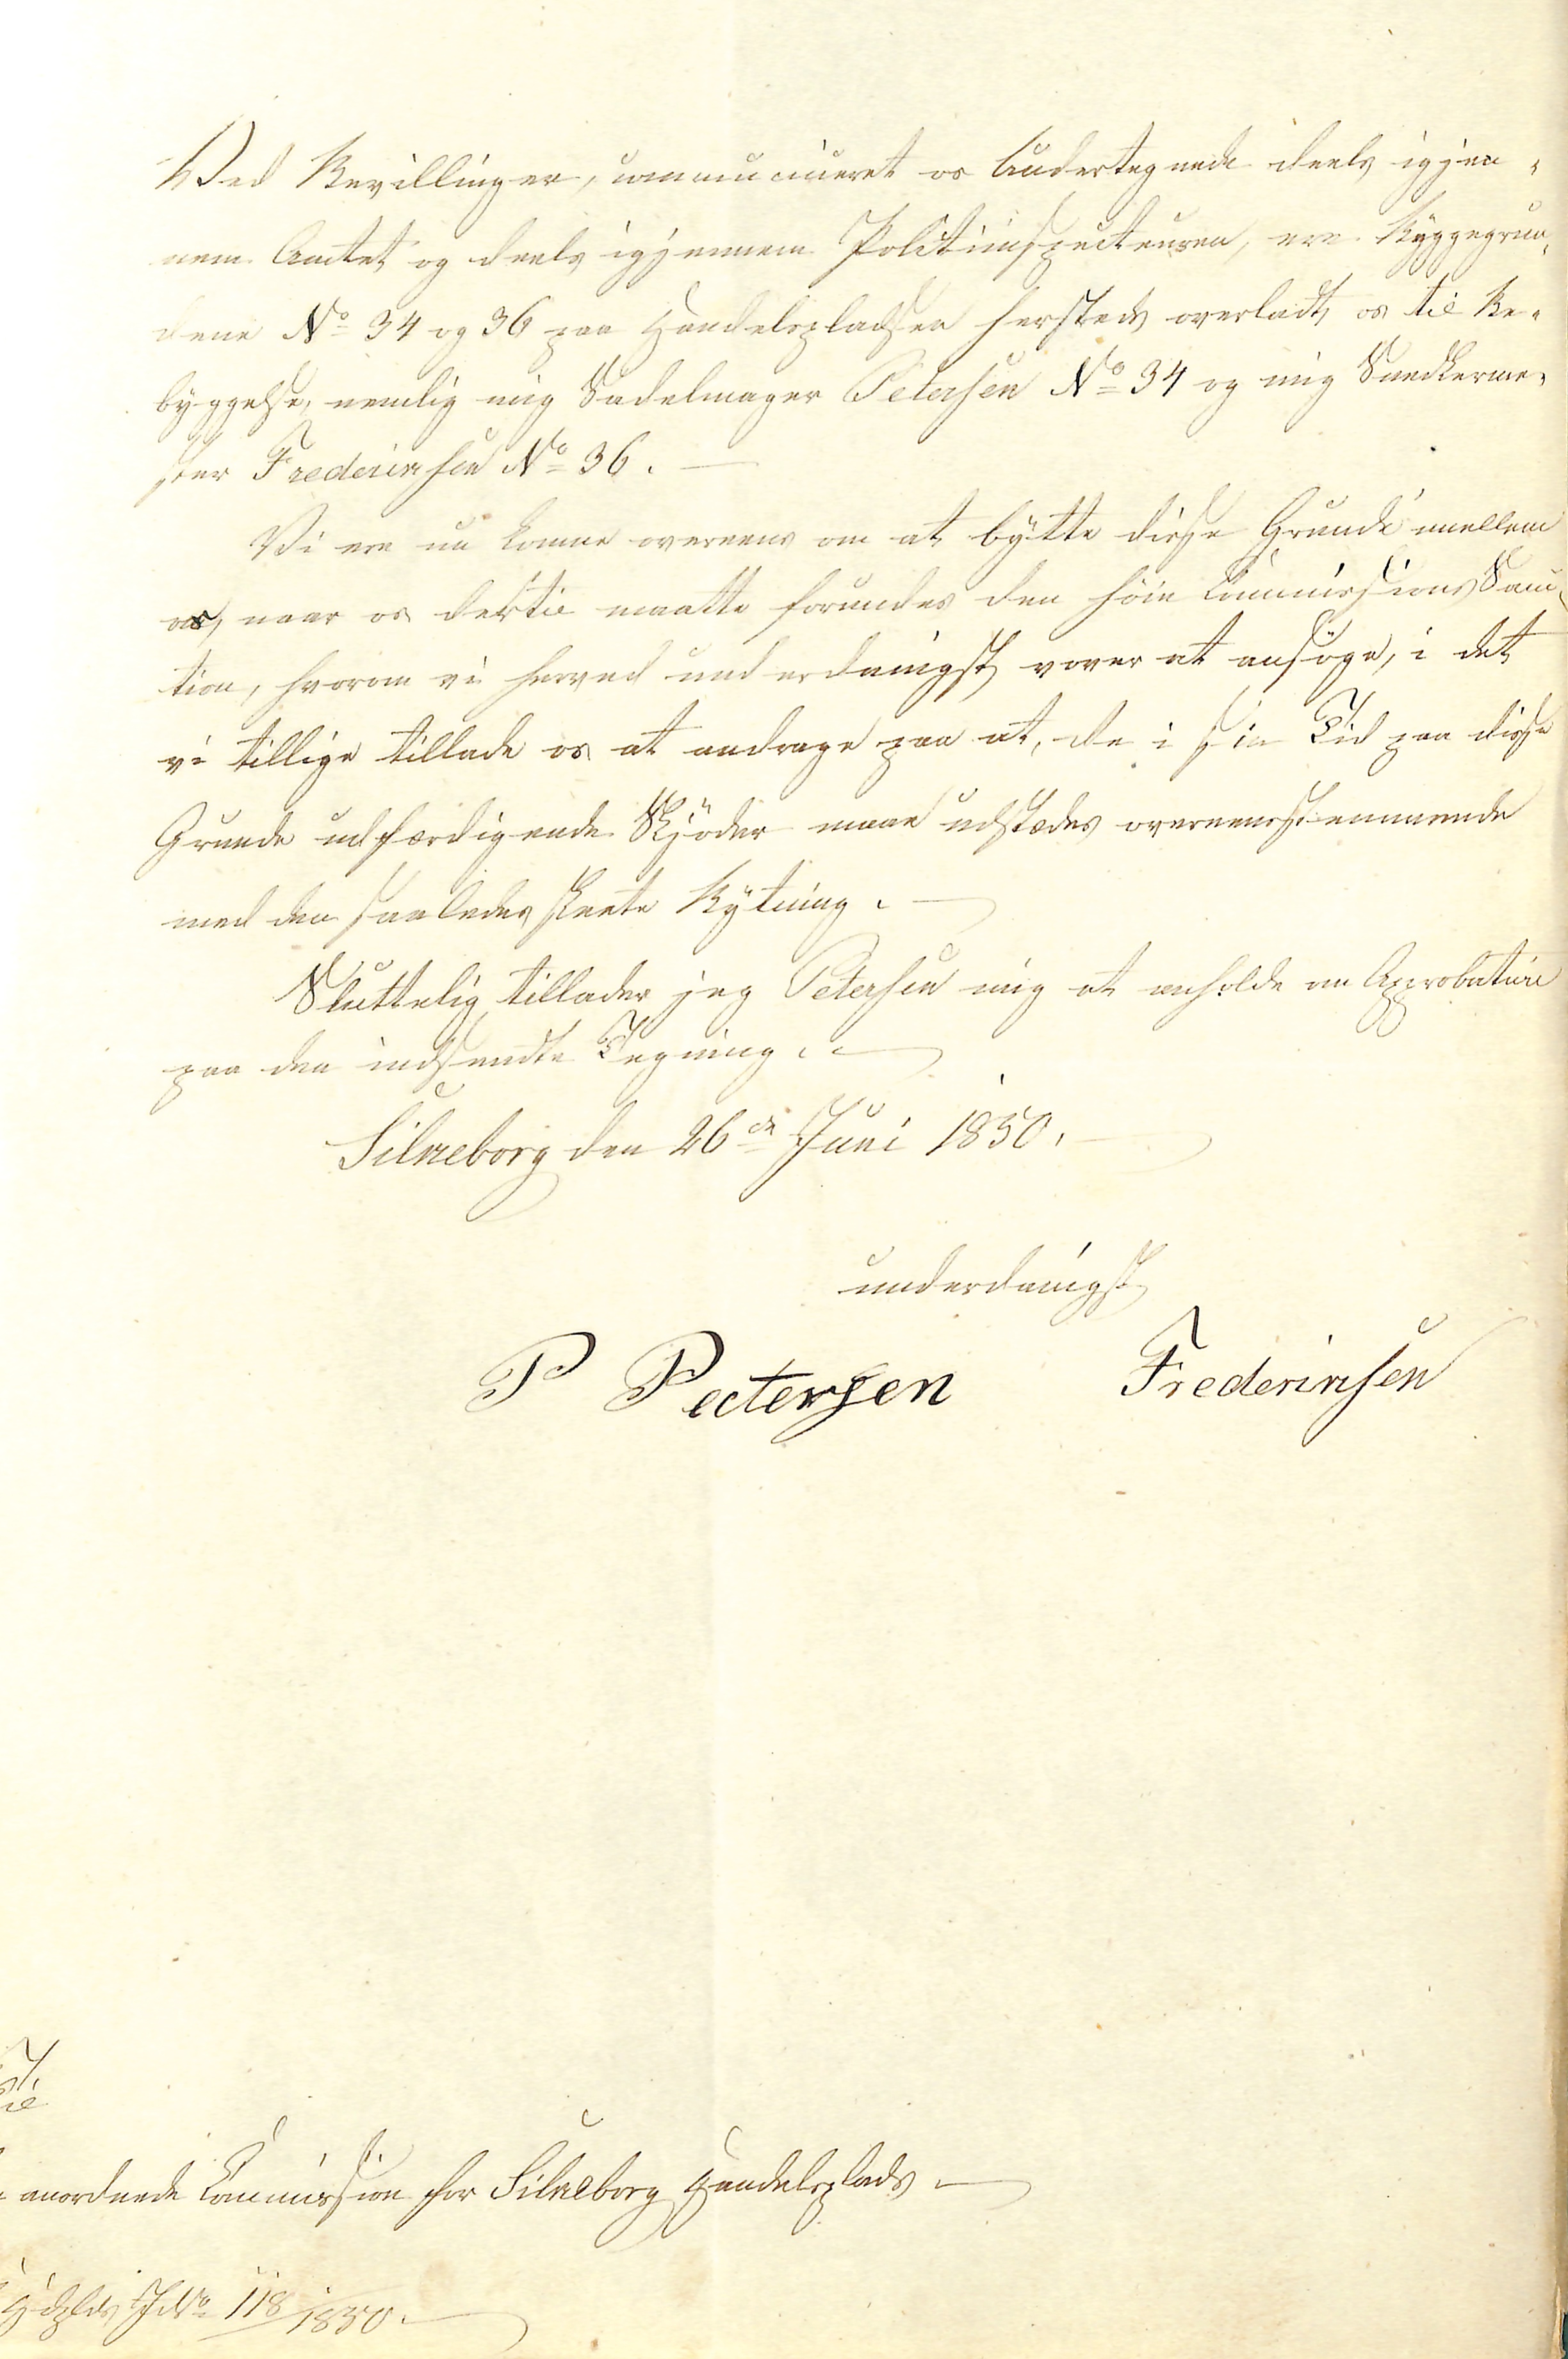 Ved Bevillinger, communiceret os Undertegnede deels igjen-
nem Amtet og deels igjennem Politiinspecteuren, ere Byggegrun-
dene No 34 og 36 paa Handelspladsen hersteds overladt os til Be-
byggelse, nemlig mig Sadelmager Petersen No 34 og mig Snedkerme-
ster Frederiksen No 36.
Vi ere nu komne overeens om at bytte disse Grunde mellem
os, naar os dertil maatte forundes den høie Commissions Sanc-
tion, hvorom vi herved underdanigst vover at ansøge, i det
vi tillige tillade os at andrage paa at, de i sin Tid paa disse
Grunde udfærdigende Skjøder maae udstædes overeensstemmende
med den saaledes skeete Bytning.
Sluttelig tillader jeg Petersen mig at anholde om Approbation
paa den indsendte Tegning.
Silkeborg den 26de Juni 1850.
underdanigst
P Pectersen Frederiksen
anordnede Commission for Silkeborg Handelsplads.
Hdplds J No 118/1850.